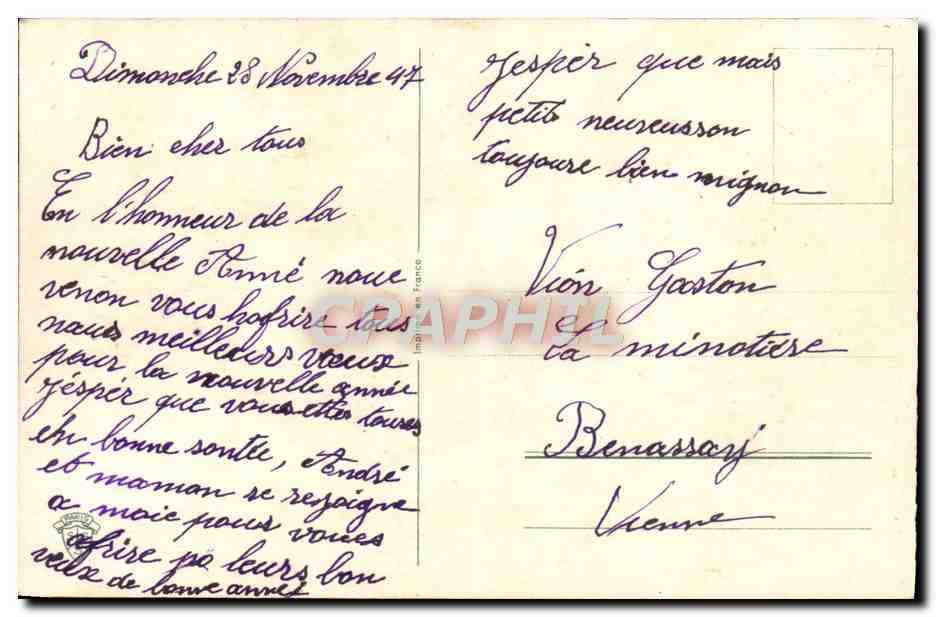 Dimanche 28 Novembre 47
Bien cher tous
En l'honneur de la
nouvelle Anné nous
venon vous hofrire tous
naus meilleurs vœux
pour la nouvelle année
j'éspér que vous ettes toures
en bonne sante, André
et maman se rejoigne
a moie pour voues
ofrire pa leurs bon
veux de bonne année
jespér que mais
petits neureusson
toujoure bien mignon
Vion Gaston
La minotière
Benassay
Vienne
Imprimé en France
CPAPHIL
PARIS